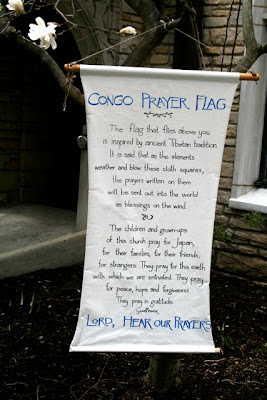 CONGO PRAYER FLAG
The flag that flies above you
is inspired by ancient Tibetan tradition.
It is said that as the elements
weather and blow these cloth squares,
the prayers written on them
will be sent out into the world
as blessings on the wind.
The children and grown-ups
of this church pray for Japan,
for their families, for their friends,
for strangers. They pray for this earth
with which we are entrusted. They pray
for peace, hope and forgiveness.
They pray in gratitude.
LORD, HEAR OUR PRAYERS